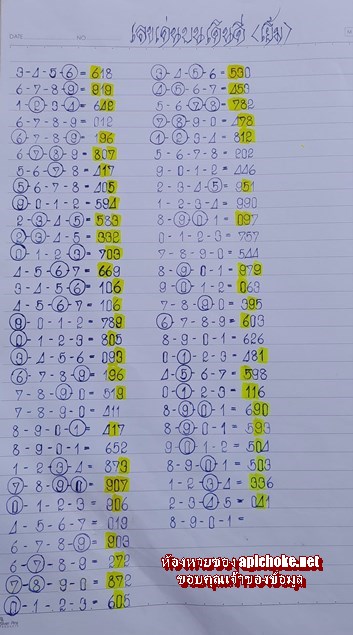 DATE NO
เลขเด่นบนโอนดี (เอ็ม)
3-4-5-6 = 618
6-7-8-9 = 919
1-2-3-4 = 642
6-7-8-9 = 012
6-7-8-9 = 196
6-7-8-9 = 807
5-6-7-8 = 417
5-6-7-8 = 405
9-0-1-2 = 594
2-3-4-5 = 583
2-3-4-5 = 332
0-1-2-3 = 703
4-5-6-7 = 669
3-4-5-6 = 106
4-5-6-7 = 106
9-0-1-2 = 789
0-1-2-3 = 805
3-4-5-6 = 093
6-7-8-9 = 196
7-8-9-0 = 519
7-8-9-0 = 411
8-9-0-1 = 417
8-9-0-1 = 652
1-2-3-4 = 873
7-8-9-0 = 907
0-1-2-3 = 906
4-5-6-7 = 019
6-7-8-9 = 903
6-7-8-9 = 272
7-8-9-0 = 872
0-1-2-3 = 605
3-4-5-6 = 530
4-5-6-7 = 453
5-6-7-8 = 782
7-8-9-0 = 478
1-2-3-4 = 812
5-6-7-8 = 202
9-0-1-2 = 446
2-3-4-5 = 951
1-2-3-4 = 990
8-9-0-1 = 097
0-1-2-3 = 757
7-8-9-0 = 544
8-9-0-1 = 979
9-0-1-2 = 063
7-8-9-0 = 395
6-7-8-9 = 603
8-9-0-1 = 626
0-1-2-3 = 481
4-5-6-7 = 598
0-1-2-3 = 116
8-9-0-1 = 690
8-9-0-1 = 593
9-0-1-2 = 504
8-9-0-1 = 503
1-2-3-4 = 336
2-3-4-5 = 041
8-9-0-1 =
ห้องหวยซอง apichoke.net
ขอบคุณเจ้าของข้อมูล